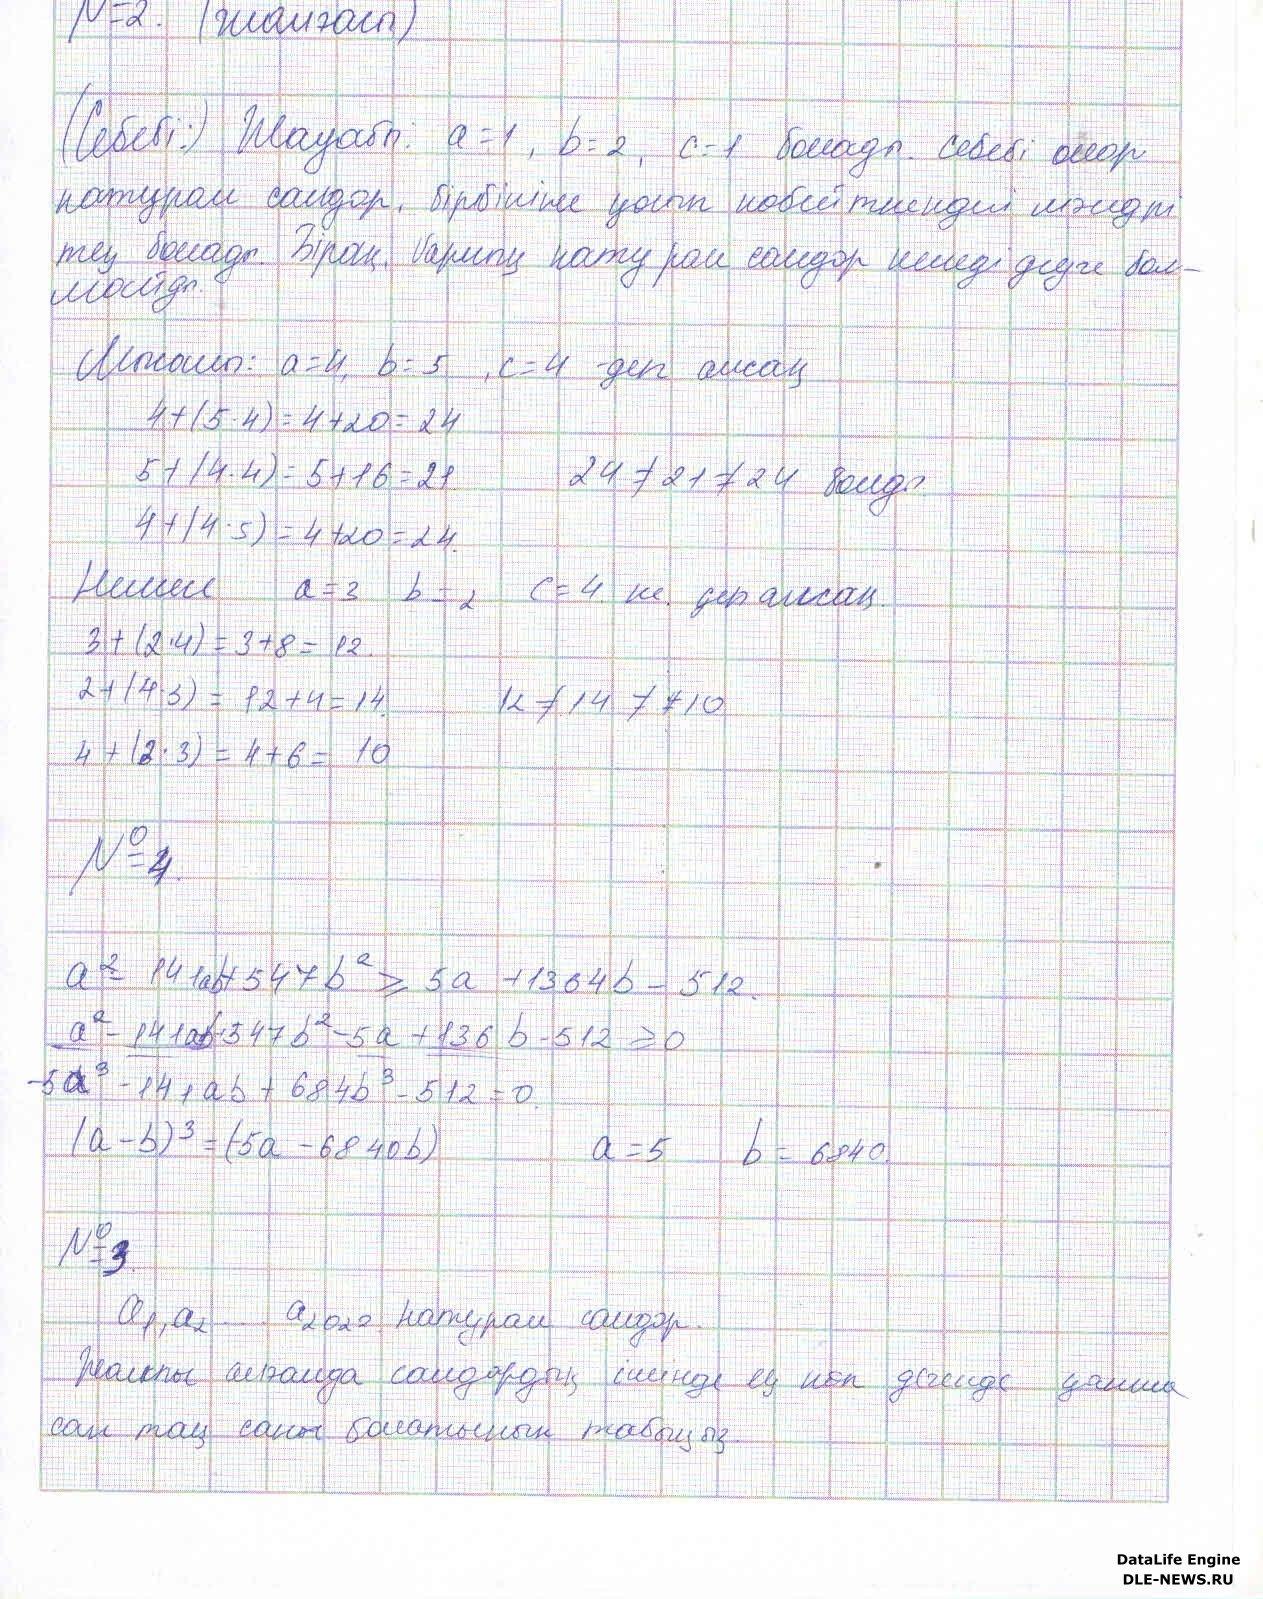 №2. (жалғасы)
(Себебі:) Жауабы: a=1, b=2, c=1 болады. себебі олар
натурал сандар, бірбіріне қосып көбейткендегі мәндрі
тең болады. Бірақ, барлық натурал сандар келеді деуге бол-
майды.
Мысалы: a=4, b=5, c=4 деп алсақ
4+(5·4)=4+20=24
5+(4·4)=5+16=21. 24≠21≠24 болды.
4+(4·5)=4+20=24.
Немесе a=3 b=2 c=4 ке деп алсақ.
3+(2·4)=3+8=12.
2+(4·3)=12+4=14. 12≠14≠≠10
4+(2·3)=4+6= 10
№4.
a²-141ab+547b²≥5a+1364b-512.
a²-141ab+547b²-5a+136b-512≥0
-5a³-141ab+684b³-512=0.
(a-b)³=(-5a-6840b) a=5 b=6840.
№3.
a₁,a₂... a₂₀₂₂ натурал сандар.
Жалпы алғанда сандардың ішінде ең көп дегенде қанша
сан тақ саны болатынын табыңыз.
DataLife Engine
DLE-NEWS.RU